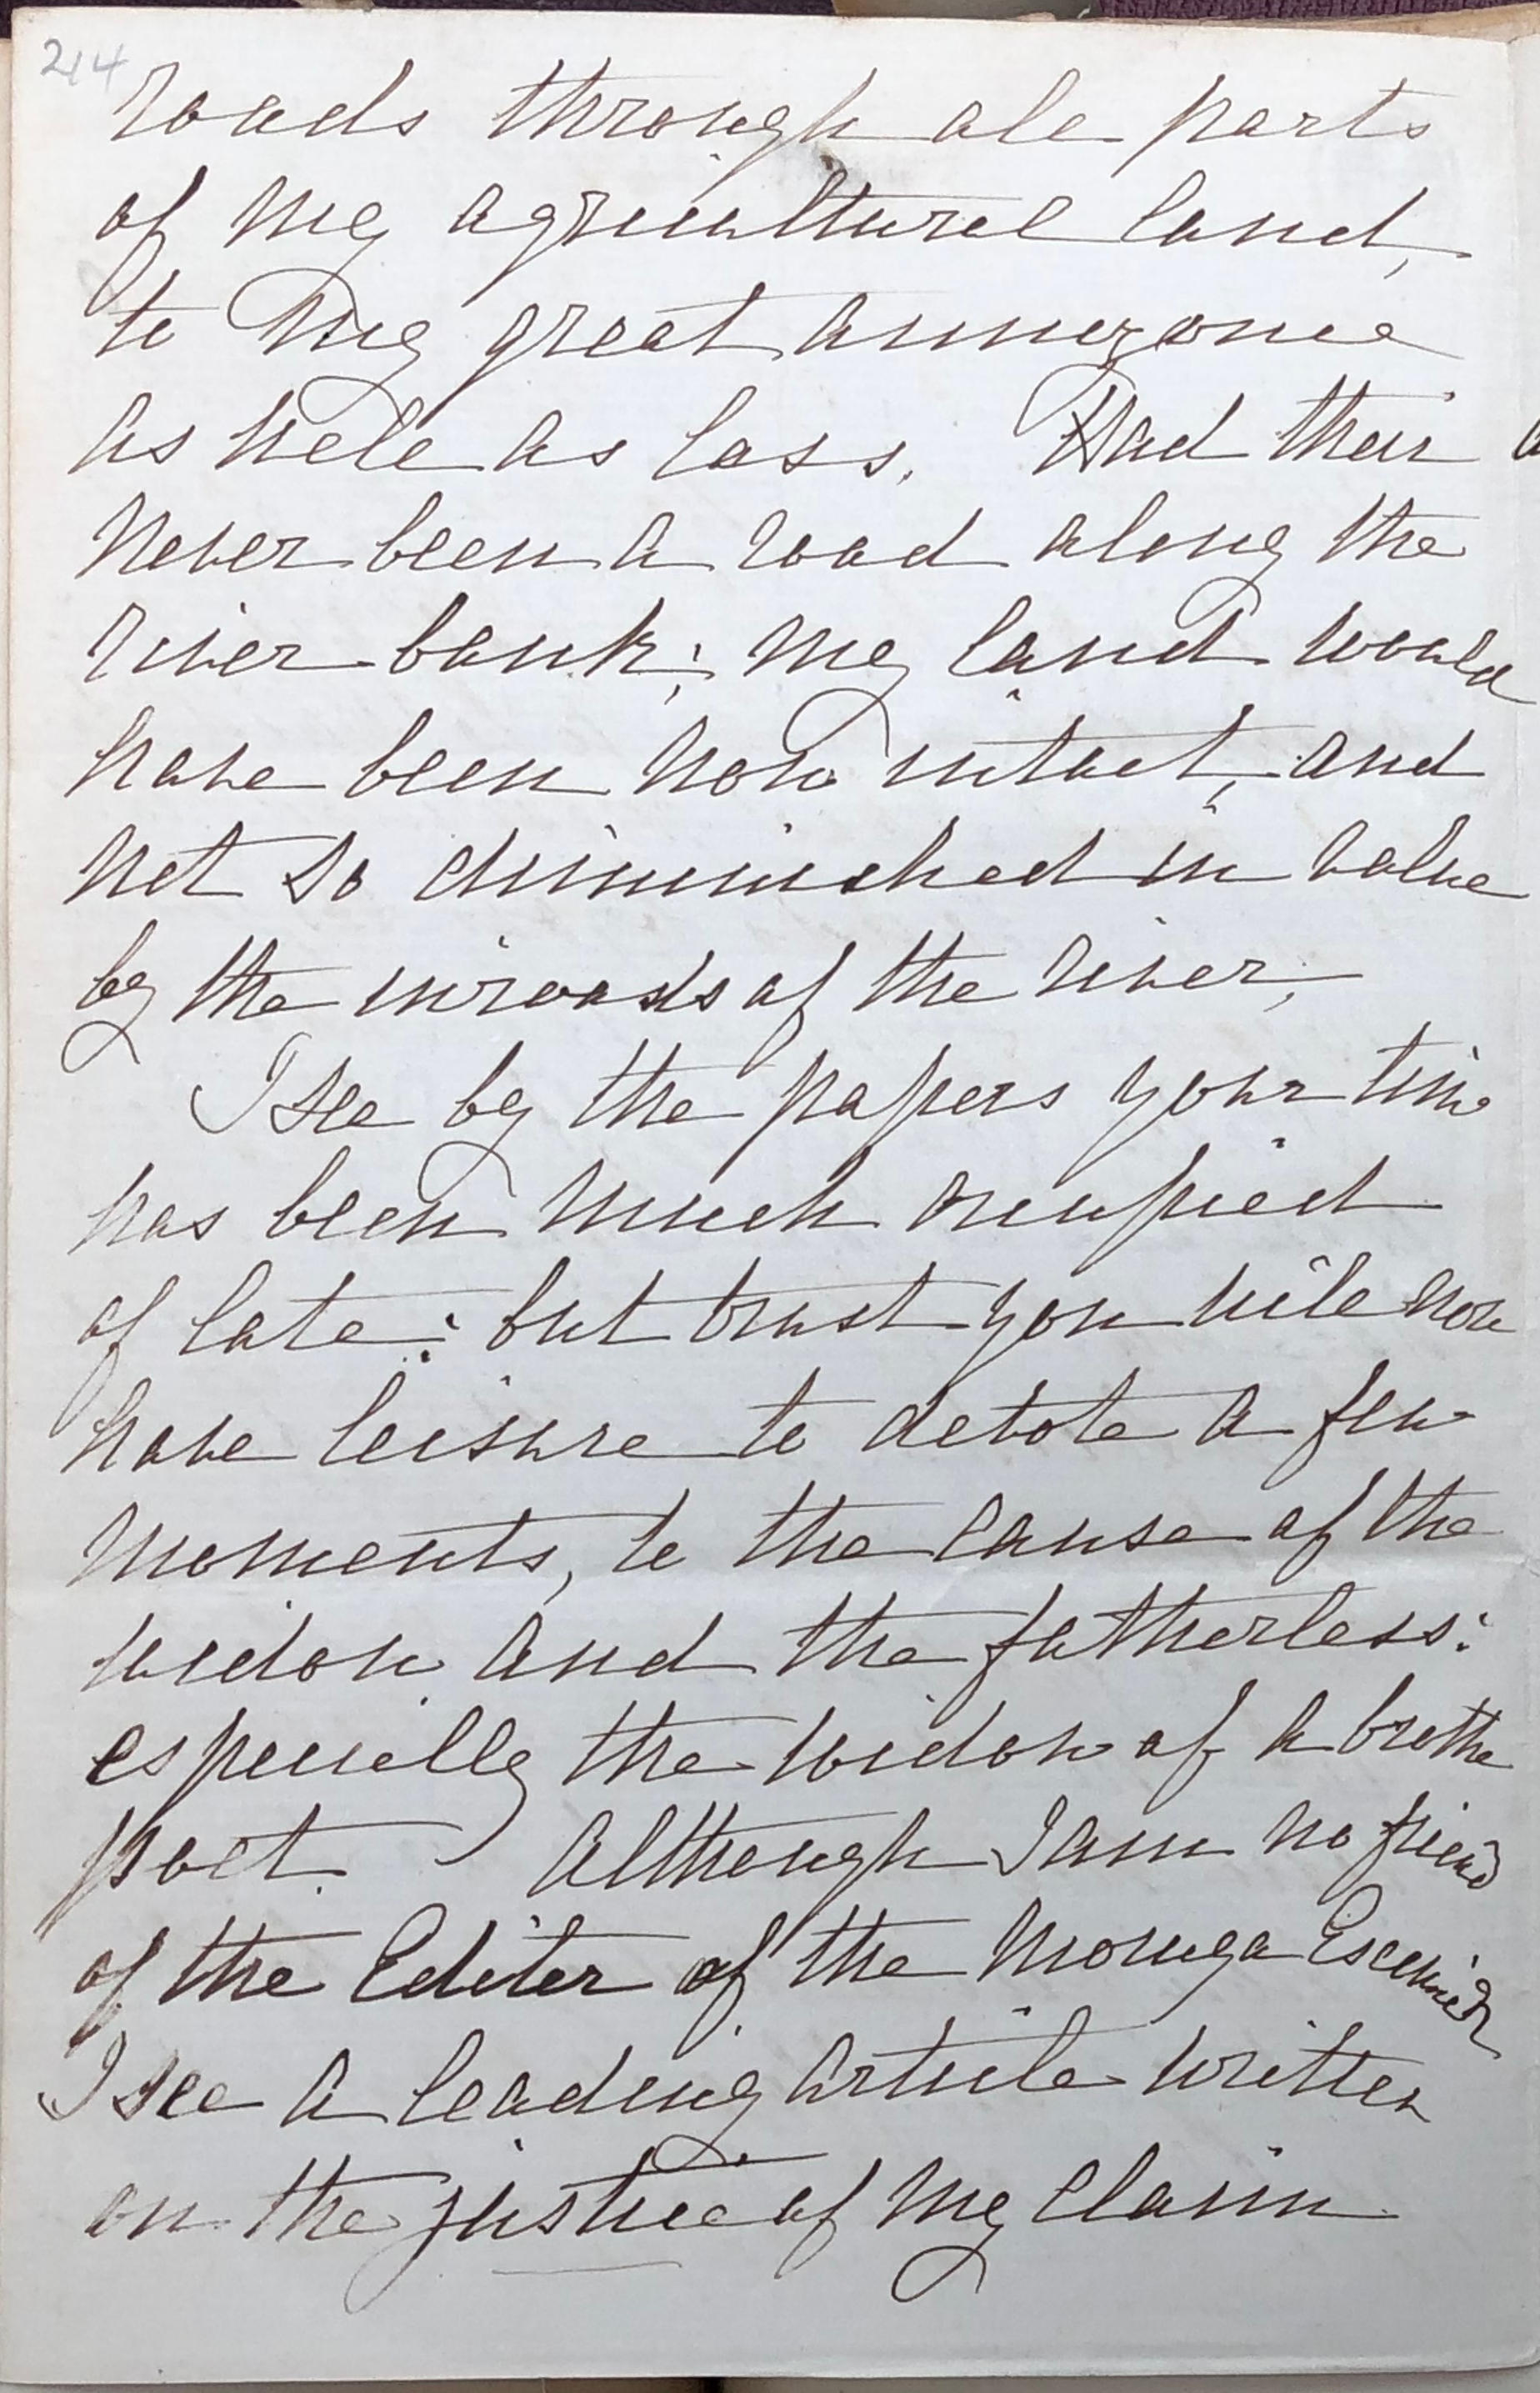 214
roads through all parts
of my agricultural land,
to my great annoyance
as well as loss. Had their
never been a road along the
river bank; my land would
have been now intact, and
not so diminished in value
by the inroads of the river,
I see by the papers your time
has been much occupied
of late: but trust you will now
have leisure to devote a few
moments, to the cause of the
widow and the fatherless:
especially the widow of a brother
poet. Although I am no friend
of the Editor of the Moruya Examiner
I see a leading article written
on the justice of my claim